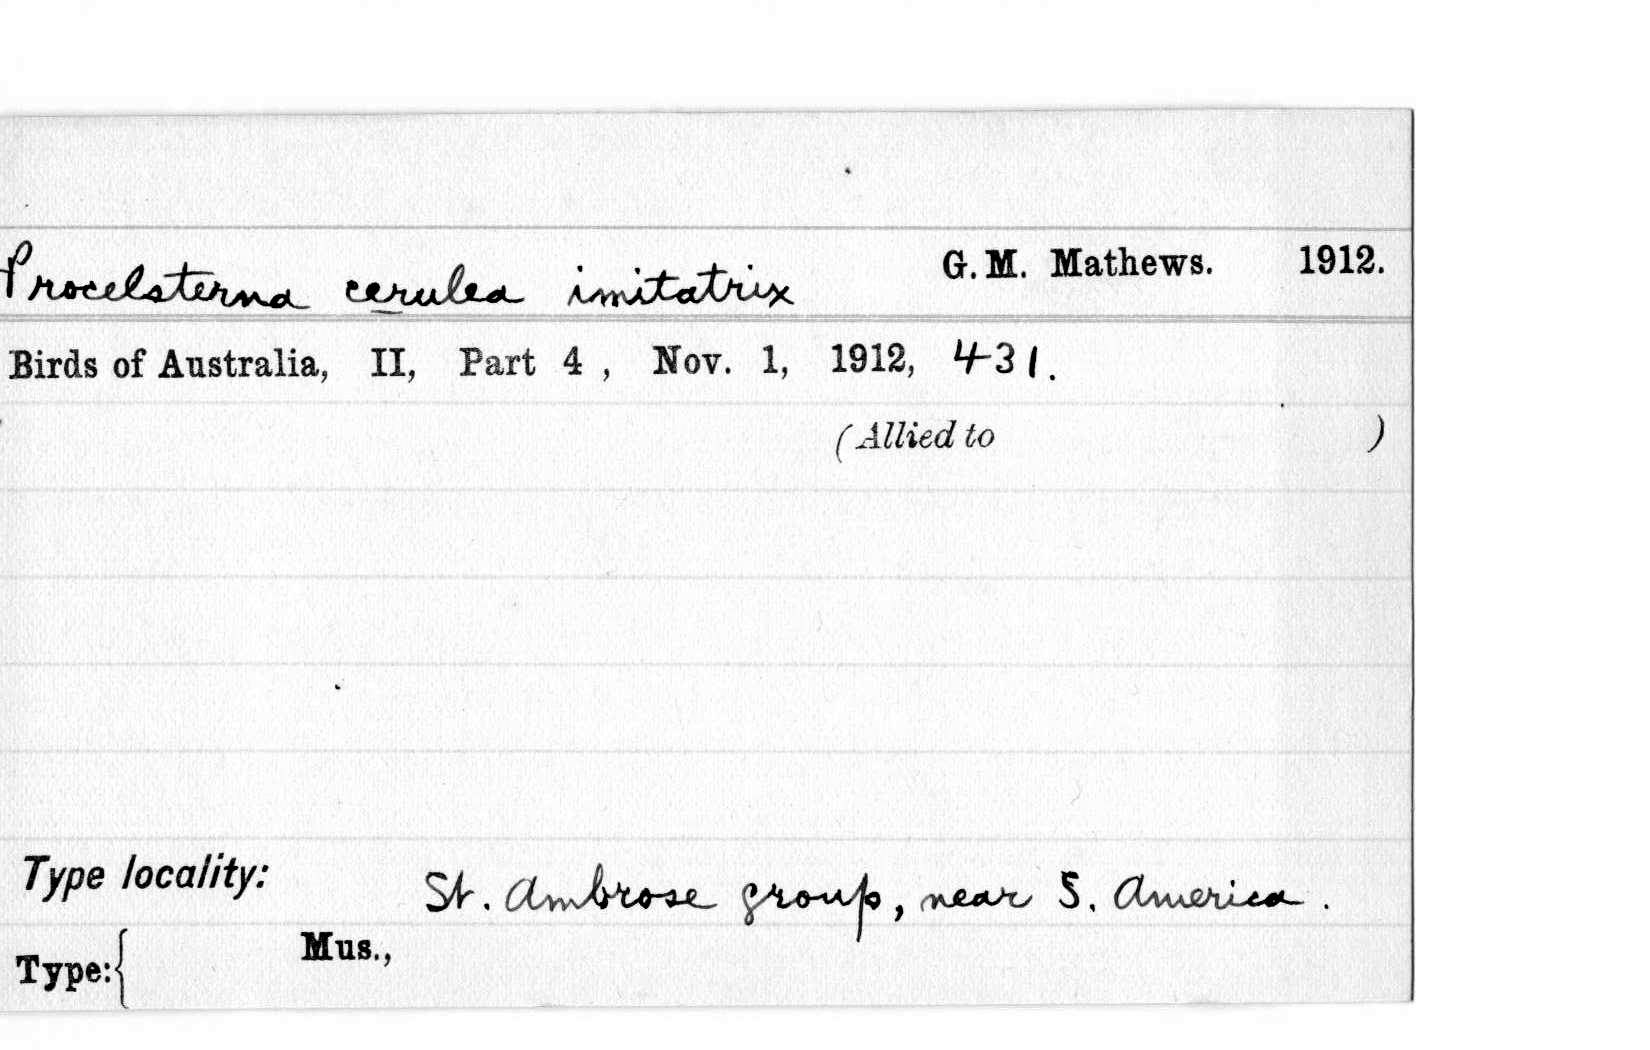 Procelsterna cerulea imitatrix G. M. Mathews. 1912.
Birds of Australia, II, Part 4 , Nov. 1, 1912, 431.
(Allied to )
Type locality: St. Ambrose group, near S. America .
Type:{ Mus.,